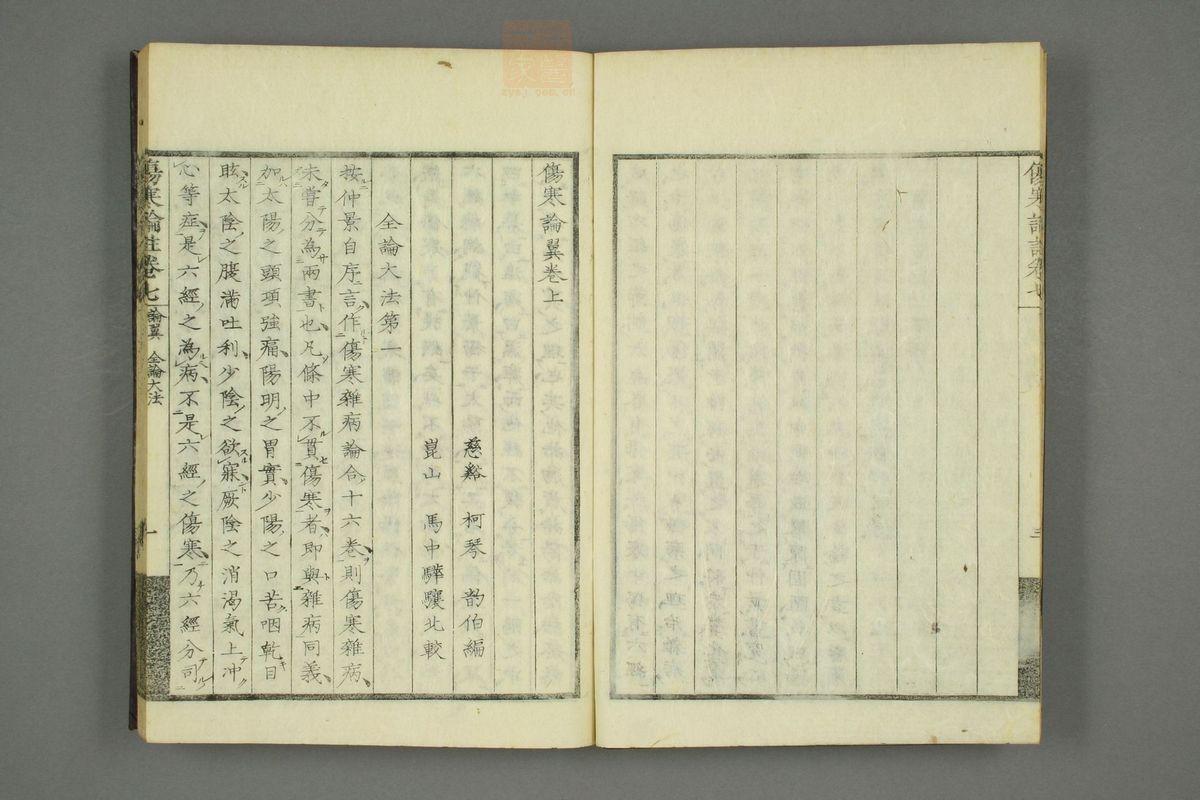 傷寒論註卷七
三
傷寒論翼卷上
慈谿 柯琴 韵伯編
崑山 馬中驊驤北較
全論大法第一
按仲景自序言作傷寒雜病論合十六卷則傷寒雜病
未嘗分為兩書也凡條中不貫傷寒者即與雜病同義
如太陽之頭項強痛陽明之胃實少陽之口苦咽乾目
眩太陰之腹滿吐利少陰之欲寐厥陰之消渴氣上冲
心等症是六經之為病不是六經之傷寒乃六經分司
傷寒論註卷七 論翼 全論大法 一
zysj.com.cn